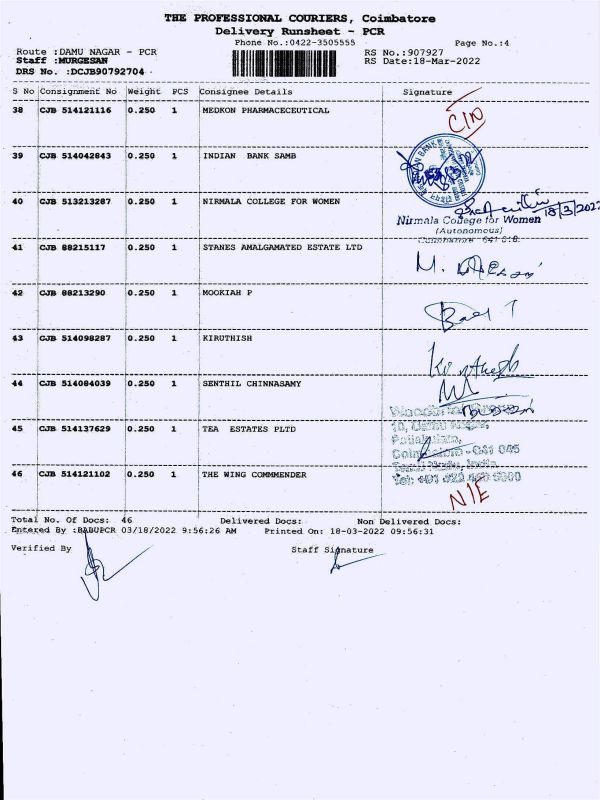 THE PROFESSIONAL COURIERS, Coimbatore
Delivery Runsheet - PCR
Phone No.:0422-3505555
Page No.:4
Route :DAMU NAGAR - PCR
RS No.:907927
Staff :MURGESAN
RS Date:18-Mar-2022
DRS No. :DCJB90792704
S No Consignment No Weight PCS Consignee Details Signature
38 CJB 514121116 0.250 1 MEDKON PHARMACECEUTICAL
39 CJB 514042843 0.250 1 INDIAN BANK SAMB
40 CJB 513213287 0.250 1 NIRMALA COLLEGE FOR WOMEN
18/3/2022
Nirmala College for Women
(Autonomous)
Coimbatore - 641 018.
41 CJB 88215117 0.250 1 STANES AMALGAMATED ESTATE LTD
42 CJB 88213290 0.250 1 MOOKIAH P
43 CJB 514098287 0.250 1 KIRUTHISH
44 CJB 514084039 0.250 1 SENTHIL CHINNASAMY
45 CJB 514137629 0.250 1 TEA ESTATES PLTD
Coimbatore - 641 045
Tamil Nadu, India.
46 CJB 514121102 0.250 1 THE WING COMMMENDER
N/E
Total No. Of Docs: 46 Delivered Docs: Non Delivered Docs:
Entered By :BABUPCR 03/18/2022 9:56:26 AM Printed On: 18-03-2022 09:56:31
Verified By Staff Signature